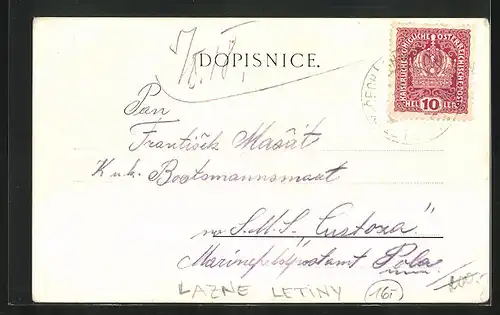 7/8.18.
DOPISNICE.
KAISERLICHE KÖNIGLICHE ÖSTERREICHISCHE POST
HELLER 10 HELLER
Pan
František Masát
K.u.k. Bootsmannsmaat
na S.M.S. „Custoza"
Marinefeldpostamt Pola
LAZNE LETINY
161